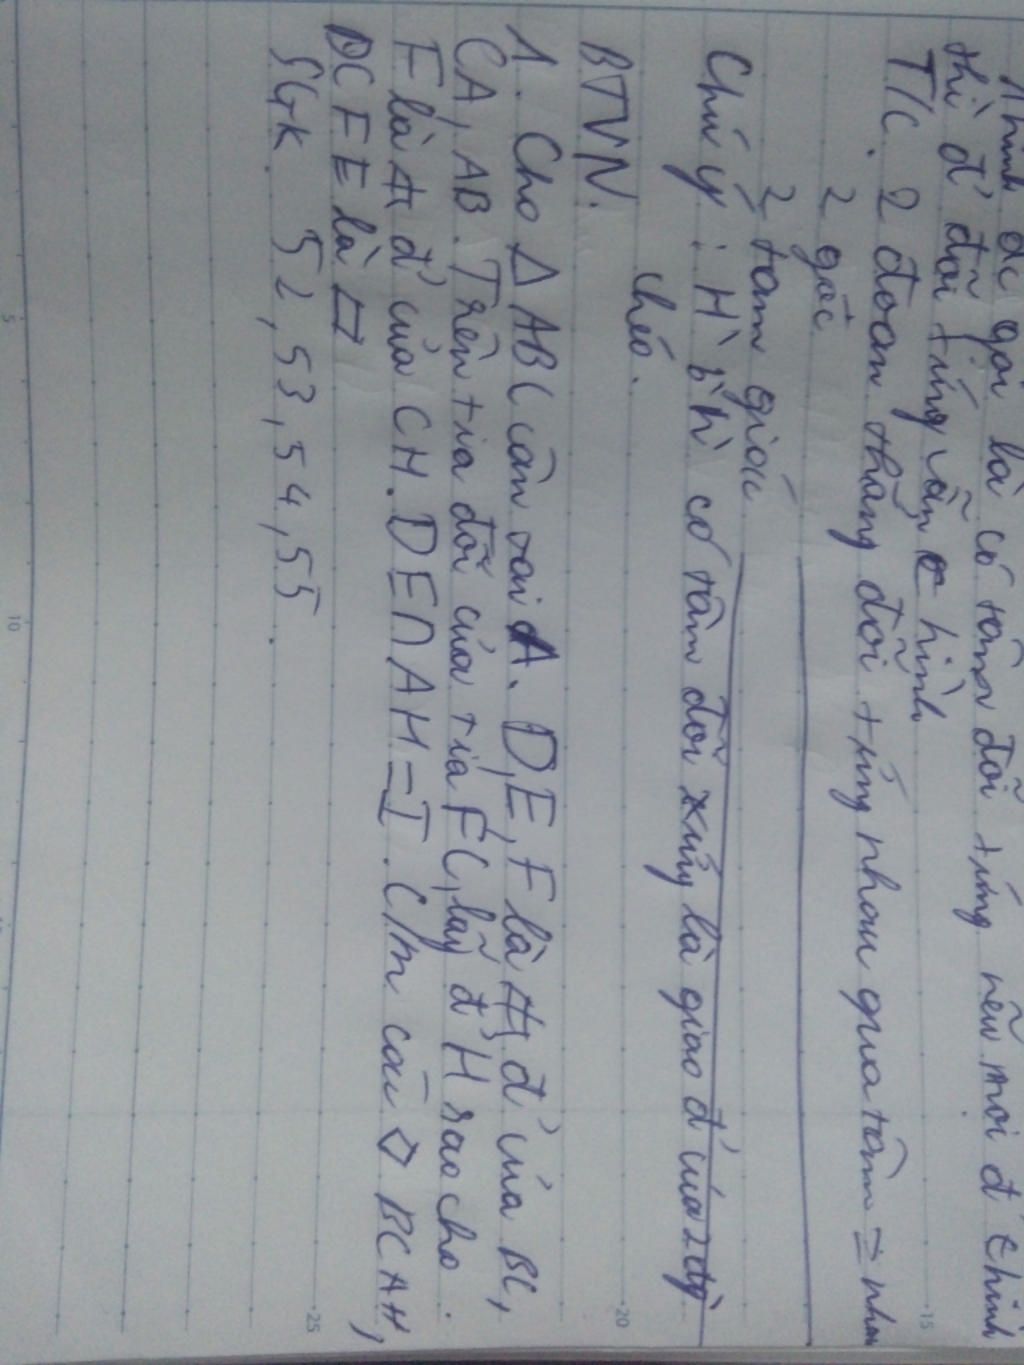 1 hình đc gọi là có tâm đối xứng nếu mọi đ' ∈ hình
thì đ' đối xứng vẫn ∈ hình
T/C. 2 đoạn thẳng đối xứng nhau qua tâm = nhau
2 góc
2 tam giác
Chú ý: H' b' h' có tâm đối xứng là giao đ' của 2 đg`
chéo.
BTVN.
1. Cho Δ ABC cân tại A. D, E, F là đ' của BC,
CA, AB. Trên tia đối của tia FC, lấy đ' H sao cho
F là đ' của CH. DE ∩ AH = I. C/m các ◇ BCAH,
DCFE là ▱
SGK 52, 53, 54, 55.
15
20
25
5
10